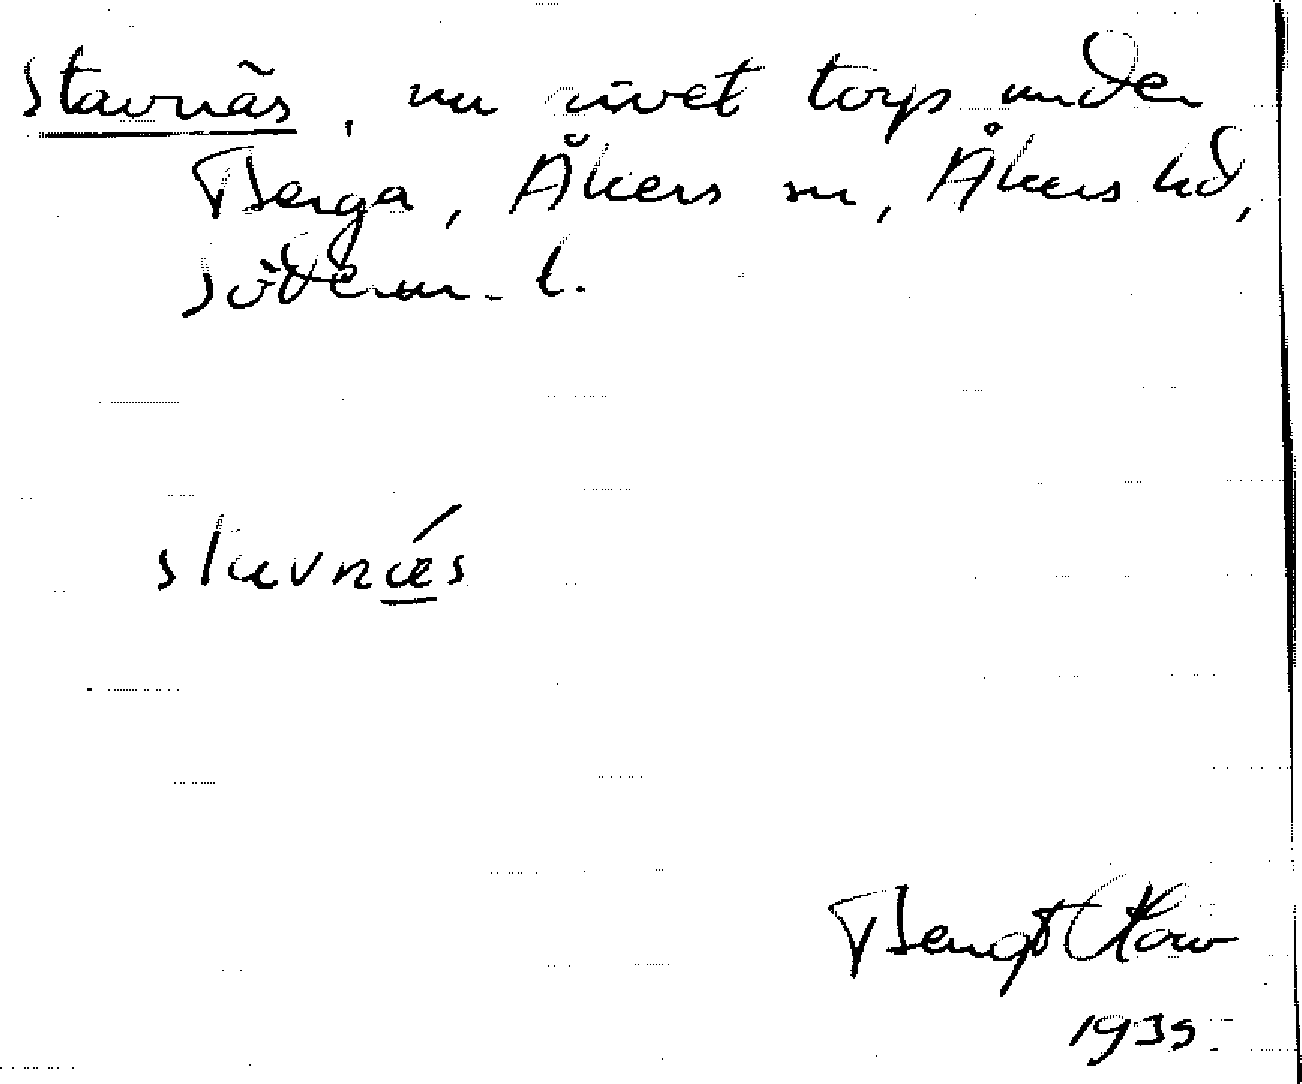 Stavnäs, nu rivet torp under
Berga, Åkers sn, Åkers hd,
Söderm. l.
stavnæ´s
Bengt
1939